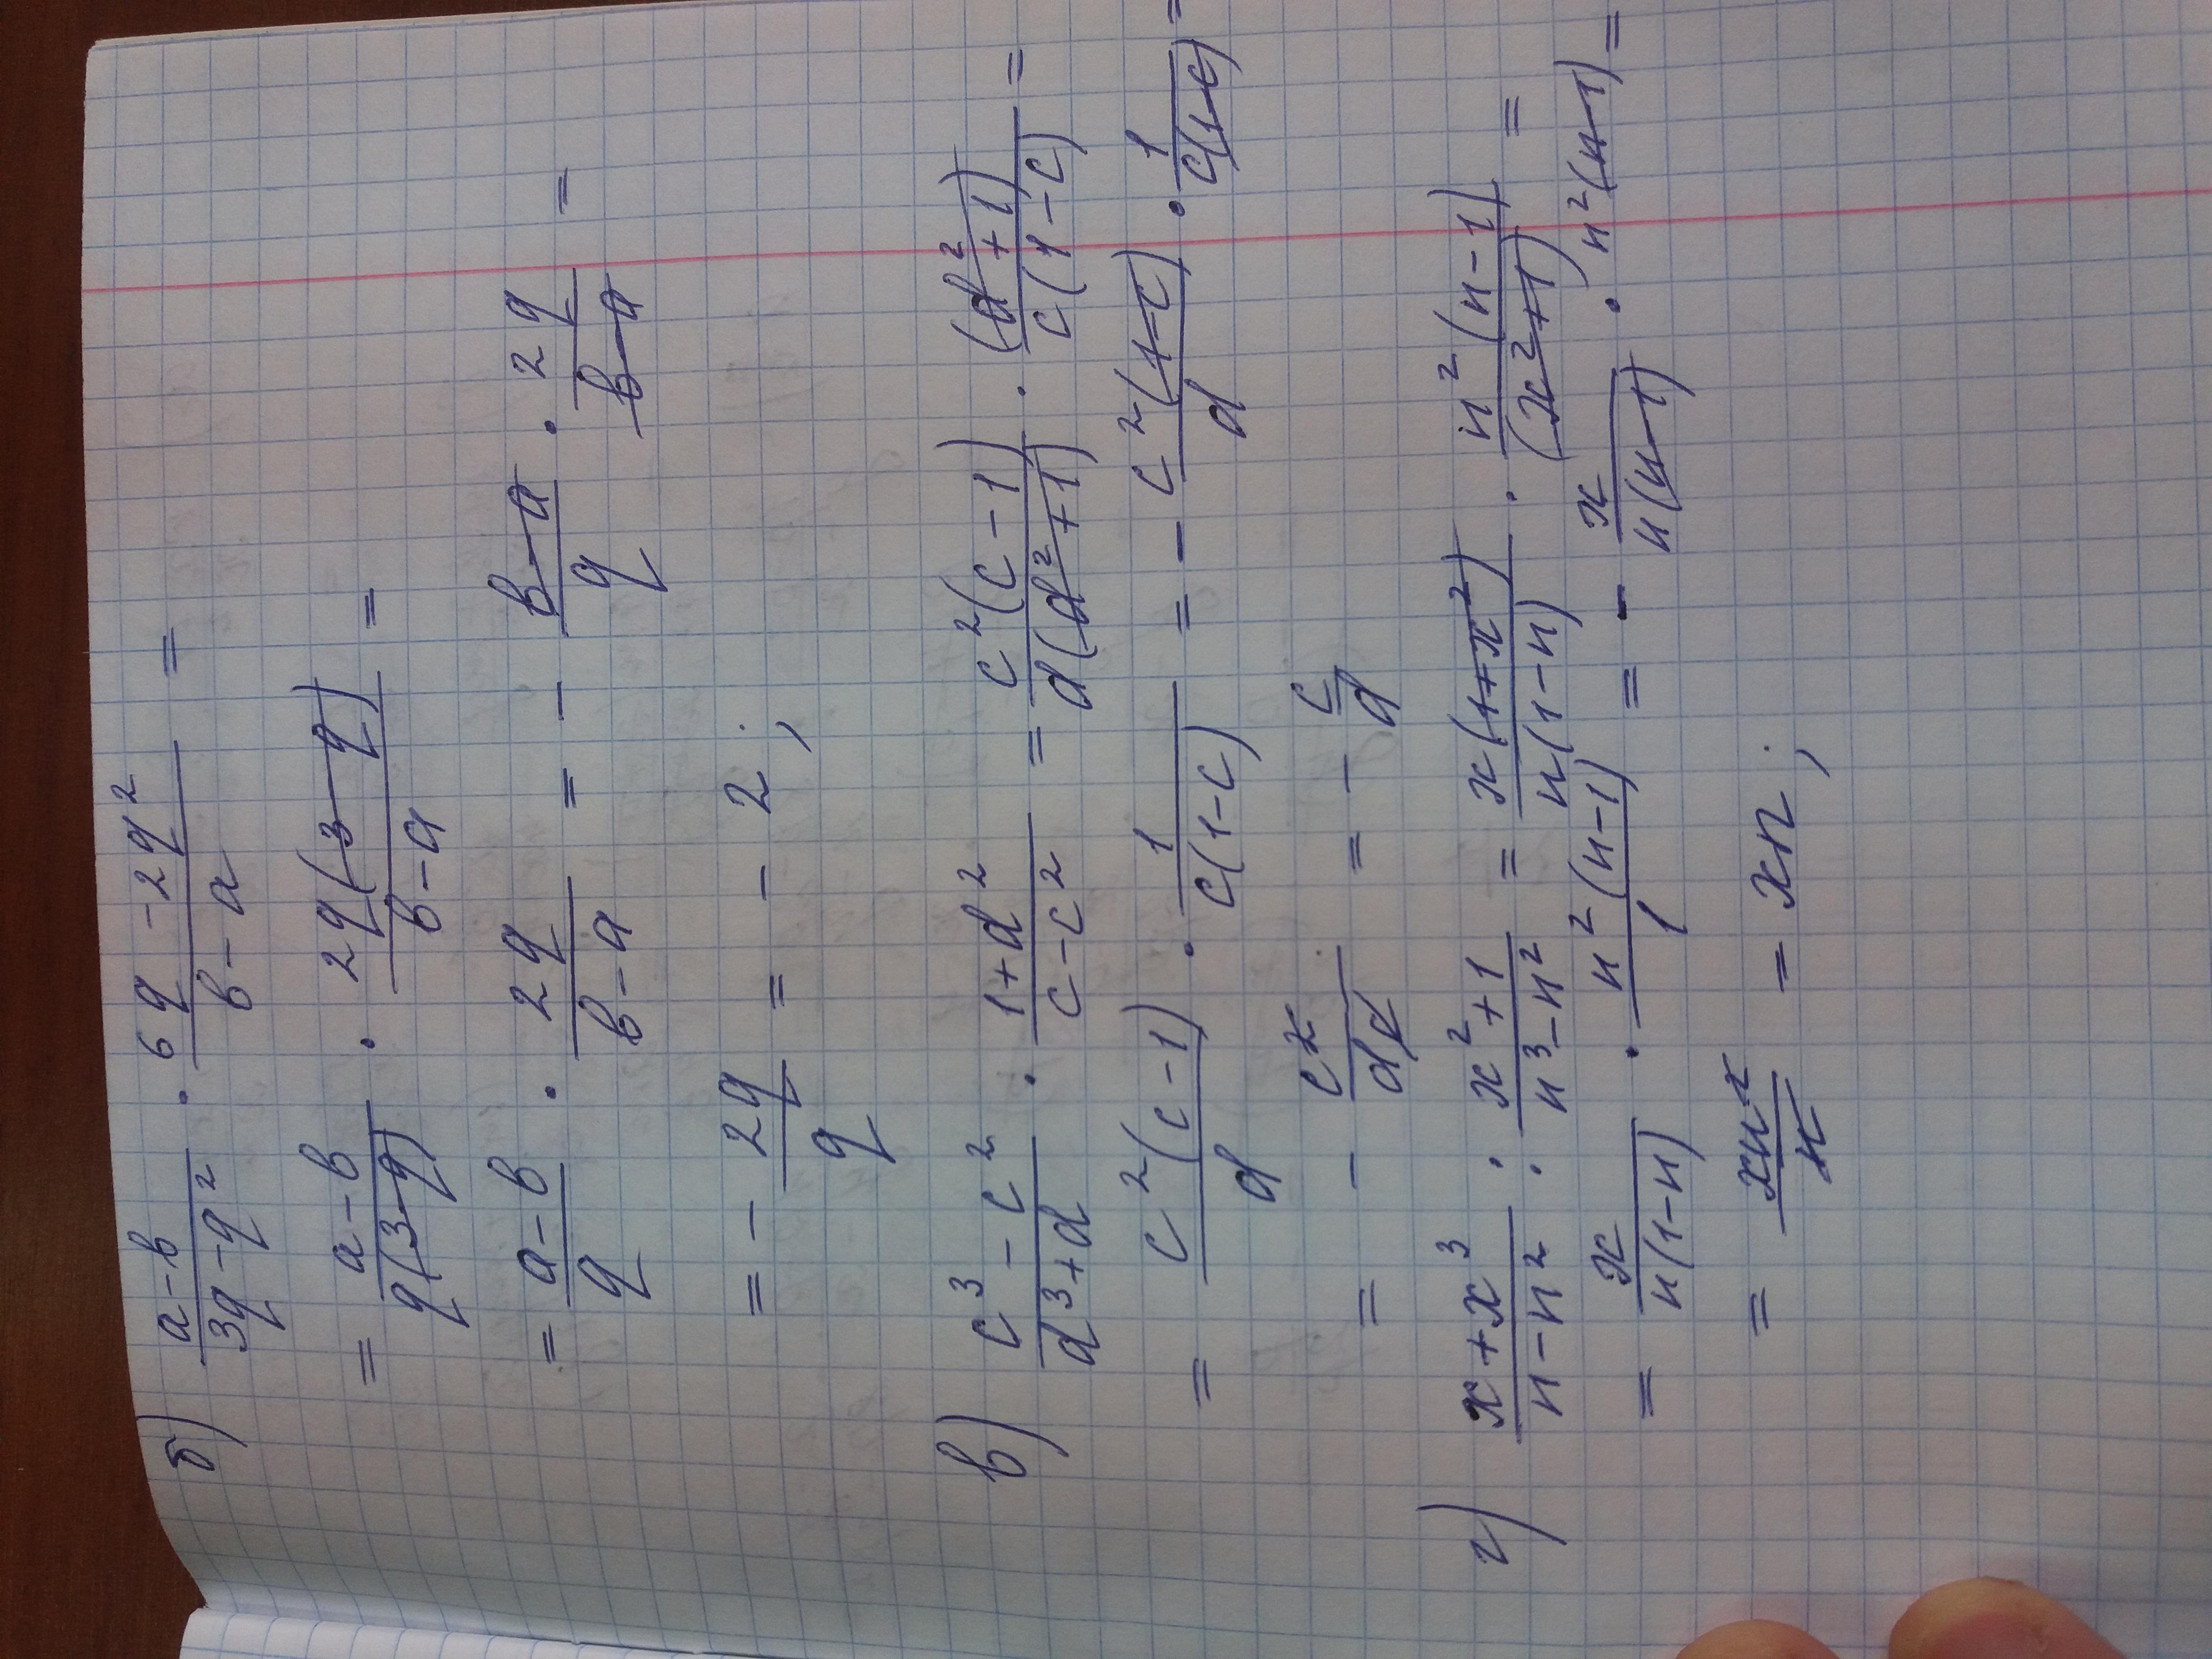 б) (a-b)/(3q-q²) · (6q-2q²)/(b-a) =
= (a-b)/(q(3-q)) · (2q(3-q))/(b-a) =
= (a-b)/q · 2q/(b-a) = - (b-a)/q · 2q/(b-a) =
= - 2q/q = -2;
в) (c³-c²)/(d³+d) · (1+d²)/(c-c²) = (c²(c-1))/(d(d²+1)) · (d²+1)/(c(1-c)) =
= (c²(c-1))/d · 1/(c(1-c)) = - (c²(1-c))/d · 1/(c(1-c)) =
= - c²/(dc) = - c/d
г) (x+x³)/(n-n²) : (x²+1)/(n³-n²) = (x(1+x²))/(n(1-n)) · (n²(n-1))/(x²+1) =
= x/(n(1-n)) · (n²(n-1))/1 = - x/(n(n-1)) · n²(n-1) =
= xn²/n = xn;